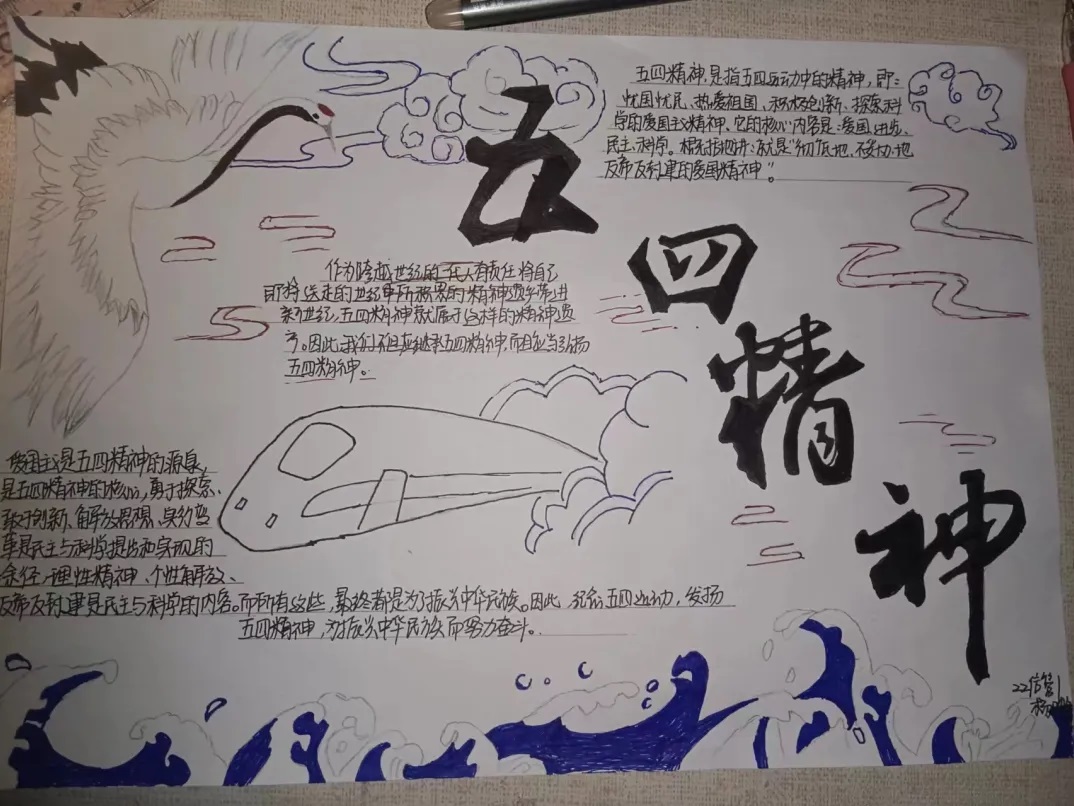 五四精神
五四精神,是指五四运动中的精神,即:
忧国忧民、热爱祖国、积极创新、探索科
学的爱国主义精神、它的核心内容是:爱国、进步、
民主、科学。概括地讲:就是"彻底地、不妥协地
反帝反封建的爱国精神"。
作为跨越世纪的一代人有责任将自己
即将送走的世纪中所积累的精神遗产带进
新世纪,五四精神就属于这样的精神遗
产。因此,我们不但要继承五四精神,而且应当弘扬
五四精神。
爱国主义是五四精神的源泉,
是五四精神的核心,勇于探索、
敢于创新、解放思想、实行变
革是民主与科学提出和实现的
途径,理性精神、个性解放、
反帝反封建是民主与科学的内容。而所有这些,最终都是为了振兴中华民族。因此,纪念五四运动,发扬
五四精神,为振兴中华民族而努力奋斗。
22信管1